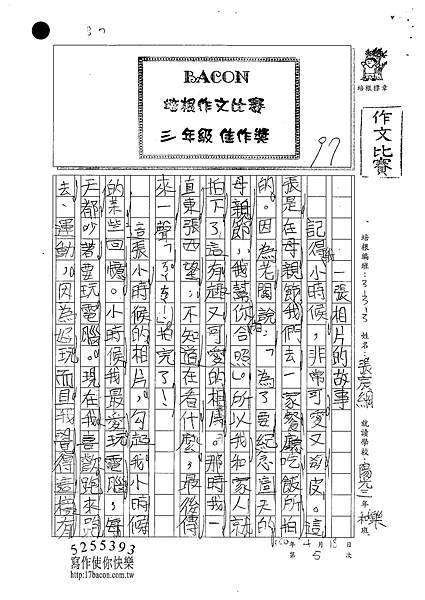 37
BACON
培根作文比賽
三年級 佳作獎
97
培根標章
作文比賽
培根編班：3-3-3 姓名：張宸綱 就讀學校：陽光三年樂班
100年4月18日 第5次
一張相片的故事
記得我小時候，非常可愛又頑皮。這
張是在母親節我們去一家餐廳吃飯所拍
的。因為老闆說：「為了要紀念這天的
母親節，我幫你合照。」所以我和家人就
拍下了這有趣又可愛的相片。那時我一
直東張西望，不知道在看什麼，最後傳
來一聲
拍完了！
這張小時候的相片，勾起我小時候
的某些回憶。小時候我最愛玩電腦，每
天都吵著要玩電腦。現在我喜歡跑來跑
去、運動，因為好玩而且我覺得這樣有
5255393
寫作使你快樂
http://17bacon.com.tw